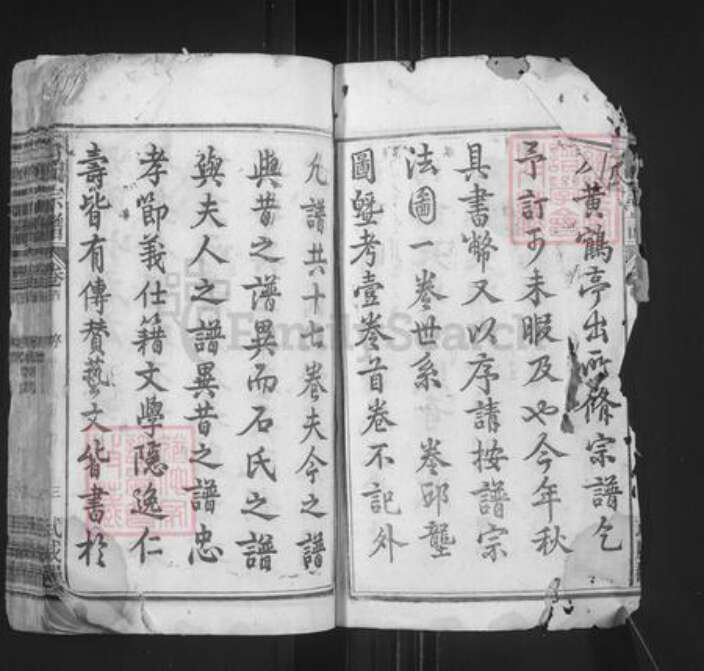 黃鶴亭出所脩宗譜乞
予訂可未暇及也今年秋
具書幣又以序請按譜宗
法圖一卷世系 卷邱壟
圖墍考壹卷首卷不記外
凡譜共十七卷夫今之譜
與昔之譜異而石氏之譜
與夫人之譜異昔之譜忠
孝節義仕籍文學隱逸仁
壽皆有傳贊藝文皆書於
宗譜
卷
序
三
武威
FamilySearch